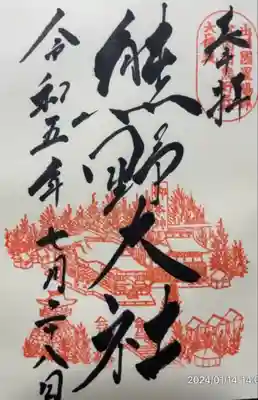 奉拝
熊野大社
令和五年七月二八日
2024/01/14 14: